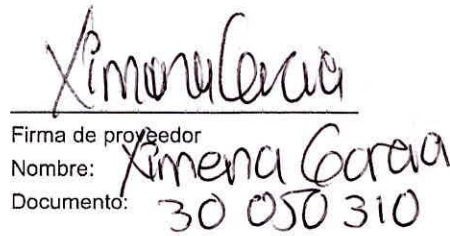 Ximena Garcia
Firma de proveedor
Nombre: Ximena Garcia
Documento: 30 050 310